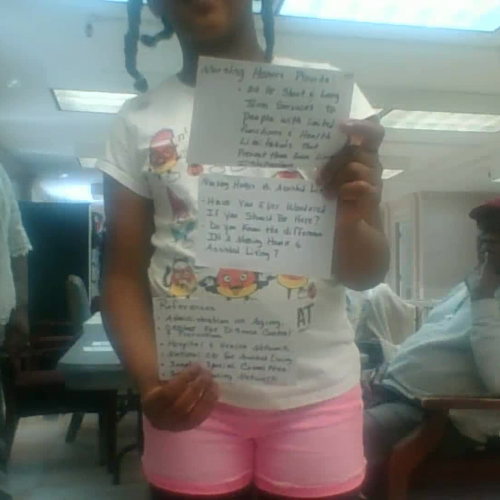 Nursing Homes Provide:
• 24 Hr Short & Long
Term Services to
People with Limited
Functions & Health
Limitations that
Prevent them from
Nursing Homes & Assisted
• Have You Ever Wondered
If you Should Be Here?
• Do you Know the difference
IN A Nursing Home &
Assisted Living?
References
• Administration on Aging
• Center For Disease Control
& Prevention
• Hospital &
• National Ctr For Assisted Living
• Special Committee
AT